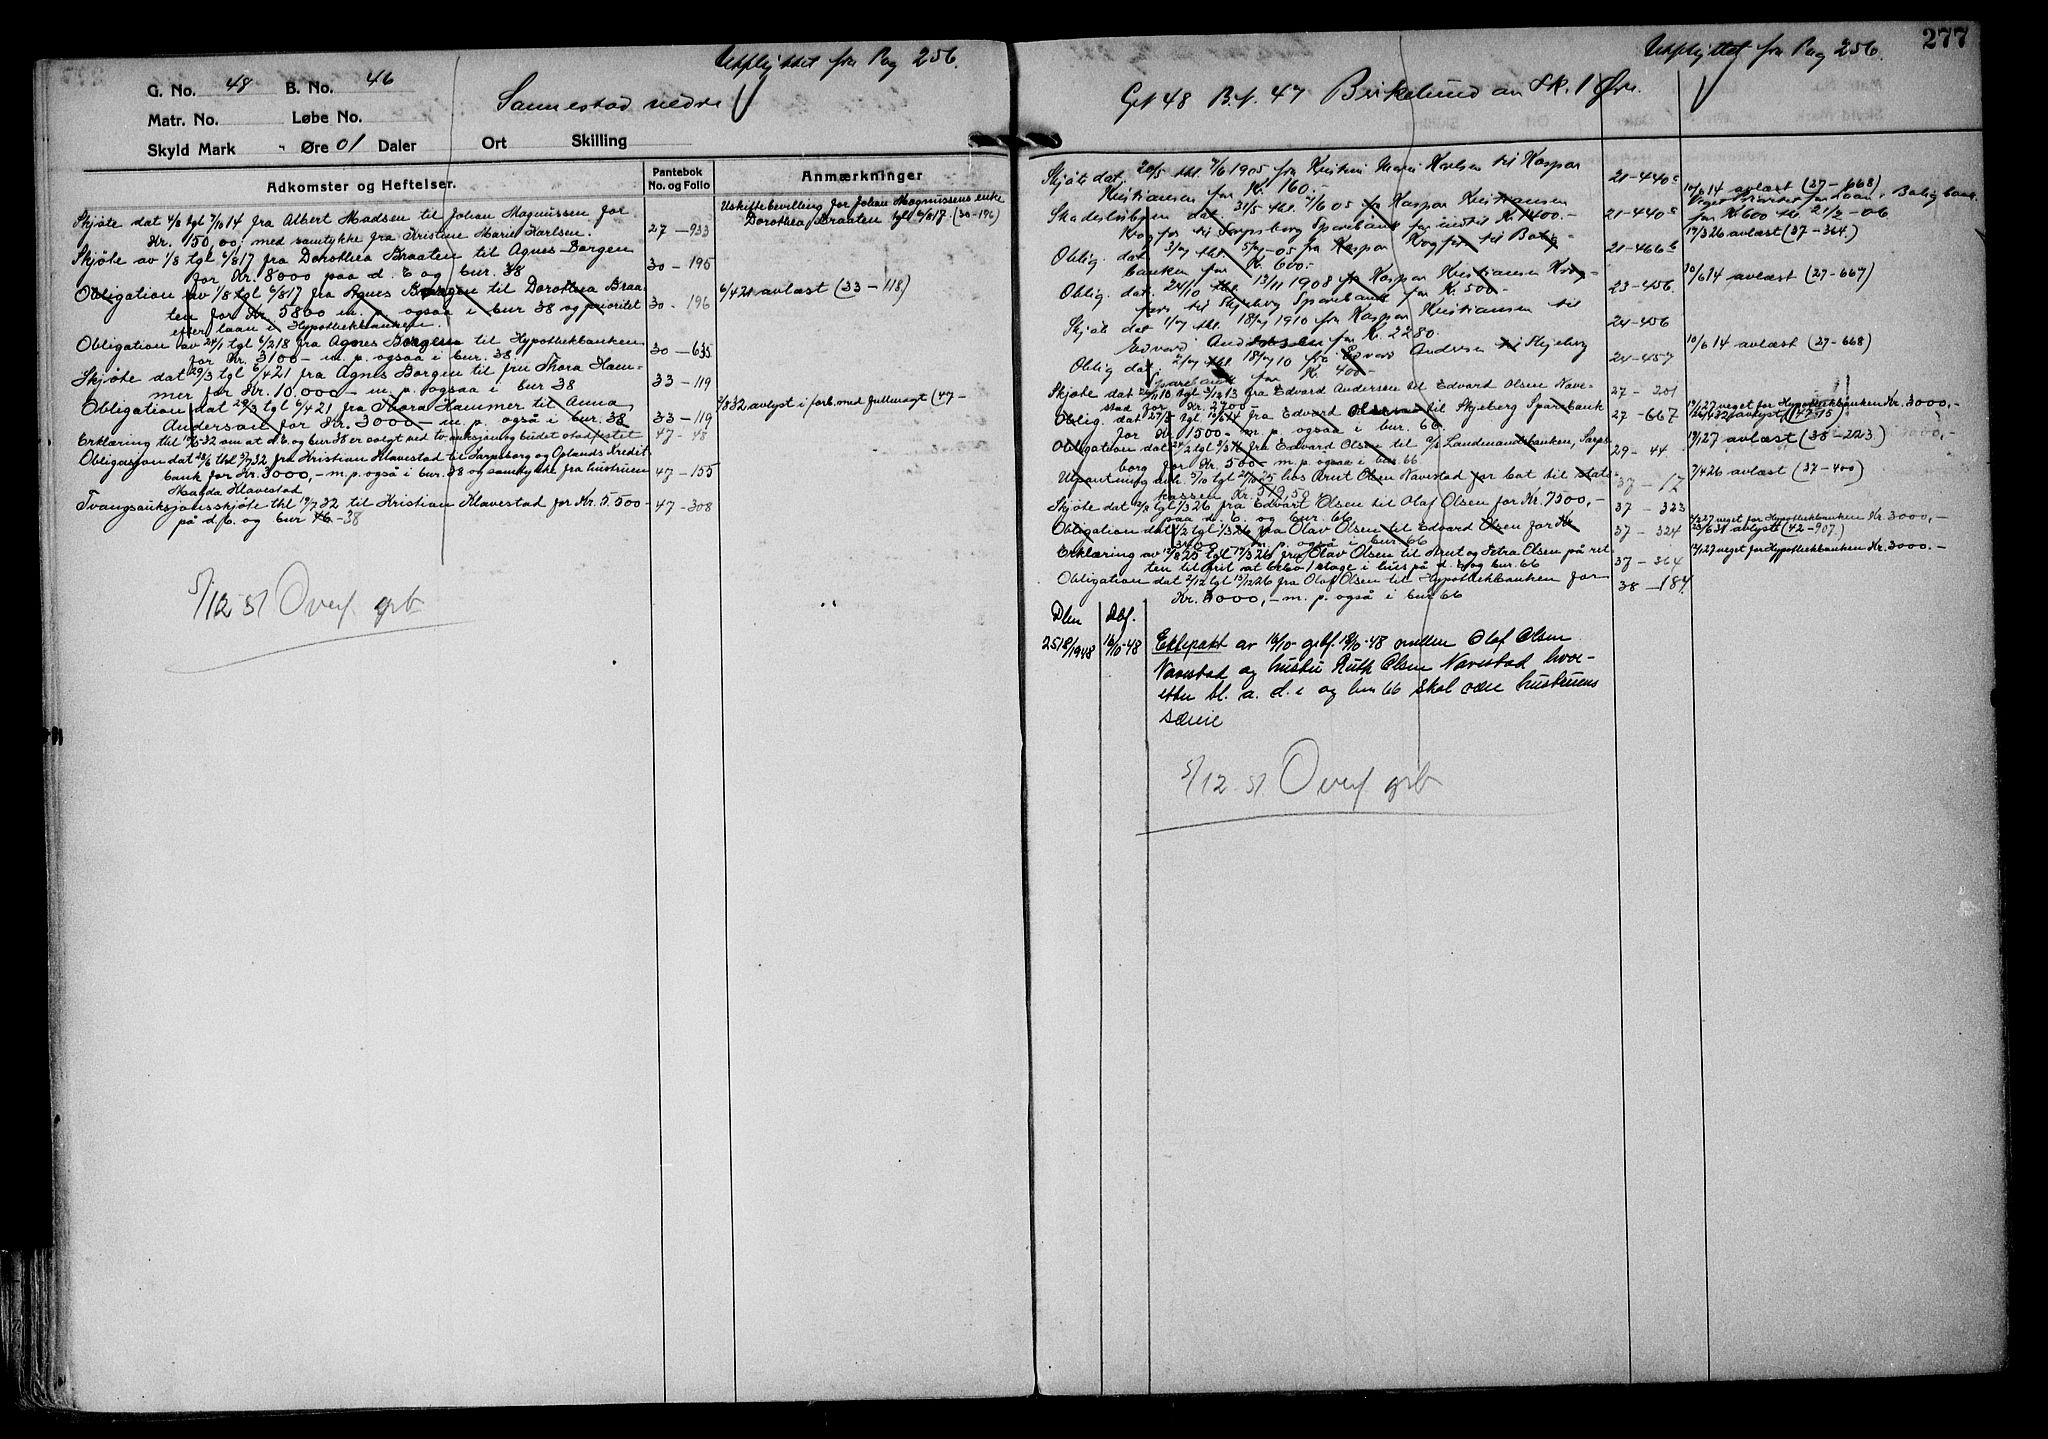 Udflyttet fra Pag 256.
G. No. 48 B. No. 46
Sannestad nedre
Matr. No. Løbe No.
Skyld Mark " Øre 01 Daler Ort Skilling
Adkomster og Heftelser.
Pantebok No. og Folio
Anmærkninger
Skjøte dat 4/8 tgl 7/10 14 fra Albert Madsen til Johan Magnussen for
Kr. 150,00. med samtykke fra Kristine Marie Karlsen. 27 - 933
Uskiftebevilling for Johan Magnussens enke
Dorothea Braaten tgl 6/8 17. (30-196)
Skjøte av 1/8 tgl 6/8 17 fra Dorothea Braaten til Agnes Borgen
for Kr. 8000 paa d. E og bnr. 38 30 - 195
Obligation av 1/8 tgl 6/8 17 fra Agnes Borgen til Dorothea Braa-
ten for Kr. 5800 m. p. ogsaa i bnr 38 og prioritet 30 - 196
efter laan i Hypothekbanken.
6/4 21 avlæst (33-118)
Obligation av 24/1 tgl 6/2 18 fra Agnes Borgen til Hypothekbanken
for Kr. 3100- m. p. ogsaa i bnr. 38 30 - 635
Skjøte dat 29/3 tgl 6/4 21 fra Agnes Borgen til fru Thora Ham-
mer for Kr. 10.000- m. p. ogsaa i bnr 38 33 - 119
Obligation dat 29/3 tgl 6/4 21 fra Thora Hammer til Anna
Andersen for Kr. 3000- m. p. også i bnr. 38 33 - 119
avlyst i forb. med fullmagt (47-
Erklæring thl 32 om at d. E. og bnr 38 er solgt ved tv. auksjon og budet stadfestet 47 - 48
Obligasjon dat 28/6 thl 3/7 32 fra Kristian Klavestad til Sarpsborg og Oplands Kredit
bank for Kr. 3000,- m. p. også i bnr. 38 og samtykke fra hustruen 47 - 155
Manda Klavestad
Tvangsauksjonsskjøte thl 19/7 32 til Kristian Klavestad for Kr. 5.500- 47 - 308
på d. E. og bnr 46 38
5/12 51 Overf grb
277
Udflyttet fra Pag 256.
Gn 48 B.n. 47 Birkelund av Sk. 1 Øre.
Skjøte dat. 20/5 thl. 7/6 1905 fra Kristine Marie Karlsen til Kaspar
Kristiansen for K. 160.- 21-440
Skadesløsbrev dat. 31/5 thl. 7/6 05 fra Kaspar Kristiansen
Krogfos til Sarpsborg Sparebank for indtil K. 1400.- 21-440
10/6 14 avlæst (27-668)
Oblig. dat 3/7 thl. 5/7-05 fra Kaspar Krogfos til Bolig-
banken for K. 600.- 21-466
for K 600 thl. 21/2-06
17/3 26 avlæst (37-364.)
Oblig. dat. 24/10 thl. 13/11 1908 fra Kaspar Kristiansen Krog-
fos til Skjeberg Sparebank for K. 500- 23-456.
10/6 14 avlæst (27-667)
Skjøte dat 1/7 thl. 18/7 1910 fra Kaspar Kristiansen til
Edvard Andersen for K. 2280. 24-456
Oblig dat. 2/7 thl 18/7 10 fra Edvard Andersen til Skjeberg
Sparebank for K. 400- 24-457
10/6 14 avlæst (27-668)
Skjøte dat 22/11 10 tgl 3/12 13 fra Edvard Andersen til Edvard Olsen Nave-
stad for Kr. 2700 27 - 201
Oblig. dat 27/5 tgl. 10/6 14 fra Edvard Olsen til Skjeberg Sparebank
for Kr 1500- m. p. ogsaa i bnr. 66. 27 - 667
12/1 27 veget for Hypothekbanken Kr. 3000,-
Obligation dat 24/2 tgl 2/3 16 fra Edvard Olsen til A/S Landmandsbanken, Sarps
borg for Kr. 500- m. p. ogsaa i bnr 66 29 - 44
19/1 27 avlæst (38-223)
Utpantning avh. 5/10 tgl 21/10 25 hos Knut Olsen Navestad for Cat til Stats-
kassen Kr. 319,50 37 - 17
7/4 26 avlæst (37-400)
Skjøte dat 12/8 tgl 1/3 26 fra Edvart Olsen til Olaf Olsen for Kr. 7500,-
paa d. E. og bnr. 66 37 - 323
Obligation dat 14/2 tgl 1/3 26 fra Olav Olsen til Edvard Olsen for Kr
m. p. også i bnr 66 37 - 324
veget for Hypothekbanken Kr. 3000,-
avlyst (42-907.)
Erklæring av 12/8 25 tgl 17/3 26 fra Olav Olsen til Knut og Petra Olsen på ret
ten til frit at bebo 1 etage i hus på d. E og bnr. 66 37 - 364
12/1 27 veget for Hypothekbanken Kr. 3000.-
Obligation dat 2/12 tgl 13/12 26 fra Olaf Olsen til Hypothekbanken for
Kr. 3000,- m. p. også i bnr 66 38 - 184.
Dbn Dbf.
2518/1948 16/10-48 Ektepakt av 16/10- grbf. 18/10-48 mellem Olaf Olsen
Navestad og hustru Ruth Olsen Navestad hvor-
etter bl. a. d. e og bnr 66 skal være hustruens
særeie
5/12 51. Overf grb